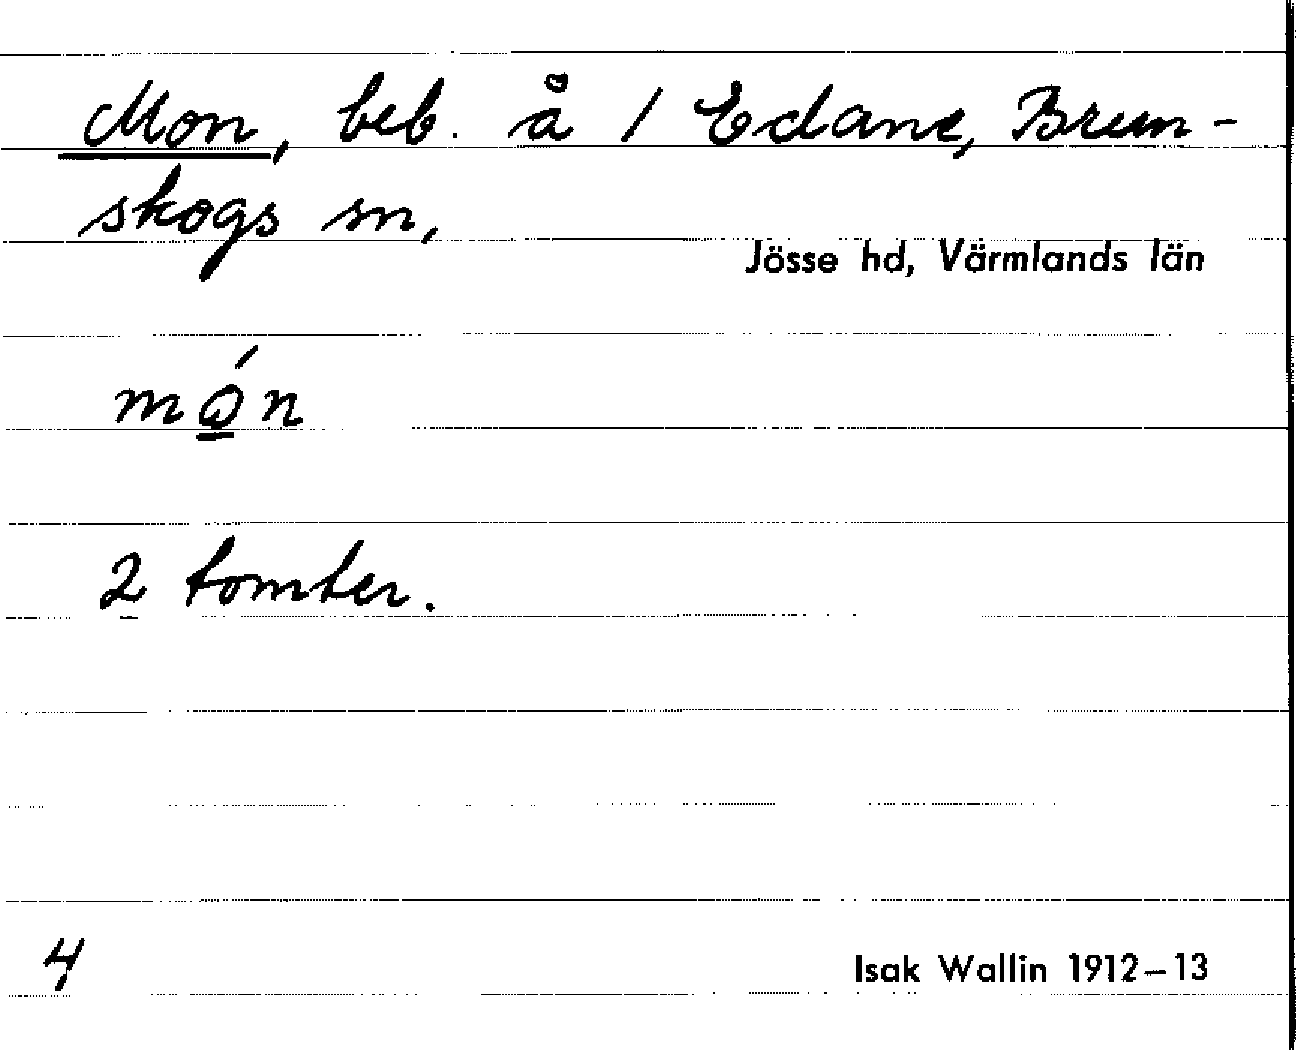 Mon, beb. å 1 Edane, Brun-
skogs sn,
Jösse hd, Värmlands län
mǫ́n
2 tomter.
4
Isak Wallin 1912–13